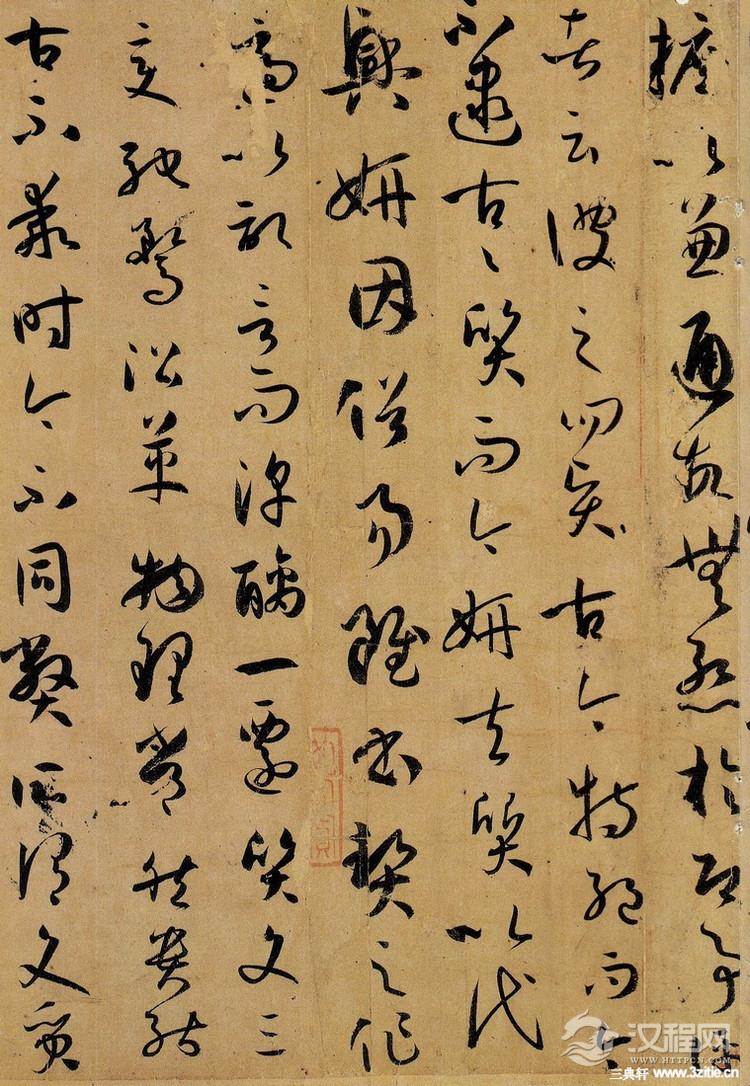 摭以兼通故無慙於即事評
者云彼之四賢古今特絕而今
不逮古〻質而今妍夫質以代
興妍因俗易雖書契之作
適以記言而淳醨一遷質文三
變馳騖沿革物理常然貴能
古不乖時今不同弊所謂文質
汉程网
WWW.HTTPCN.COM
三典轩 www.3zitie.cn